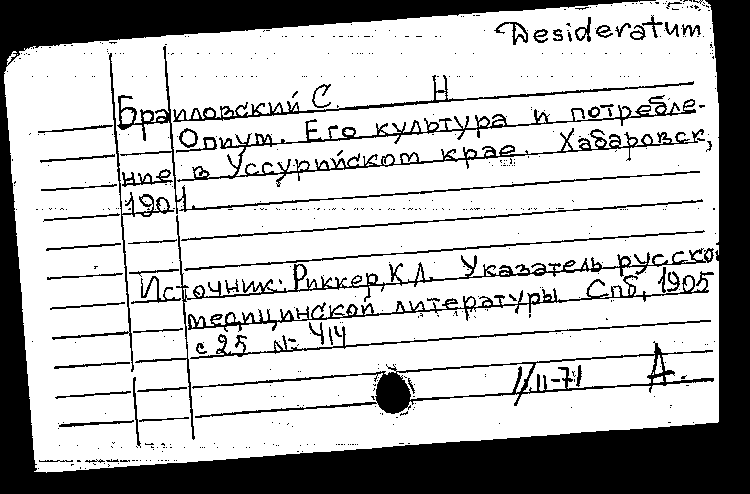 Desideratum
Браиловский С. Н
Опиум. Его культура и потребле-
ние в Уссурийском крае. Хабаровск,
1901.
Источник: Риккер, К.Л. Указатель русской
медицинской литературы Спб, 1905
с 25 № 414
11/II-71 А.